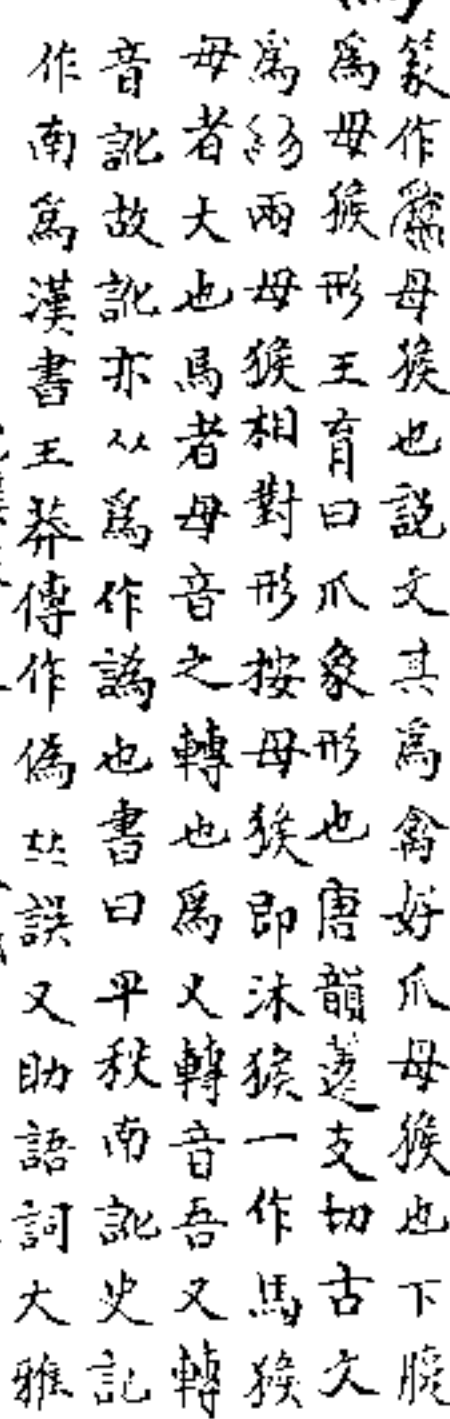 篆作爲母猴也說文其爲禽好爪母猴也下腹
爲母猴形王育曰爪象形也唐韻薳支切古文
爲兩母猴相對形按母猴即沐猴一作馬猴
母者大也馬者母音之轉也爲又轉音吾又轉
音訛故訛亦从爲作譌也書曰平秩南訛史記
作南爲漢書王莽傳作僞誤又助語詞大雅